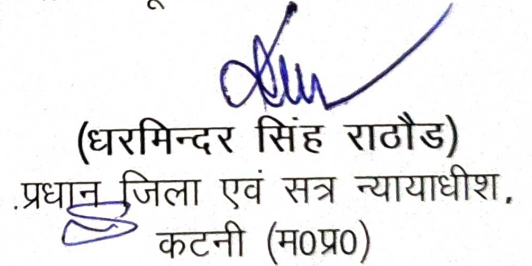 (धरमिन्दर सिंह राठौड)
प्रधान जिला एवं सत्र न्यायाधीश.
कटनी (म0प्र0)